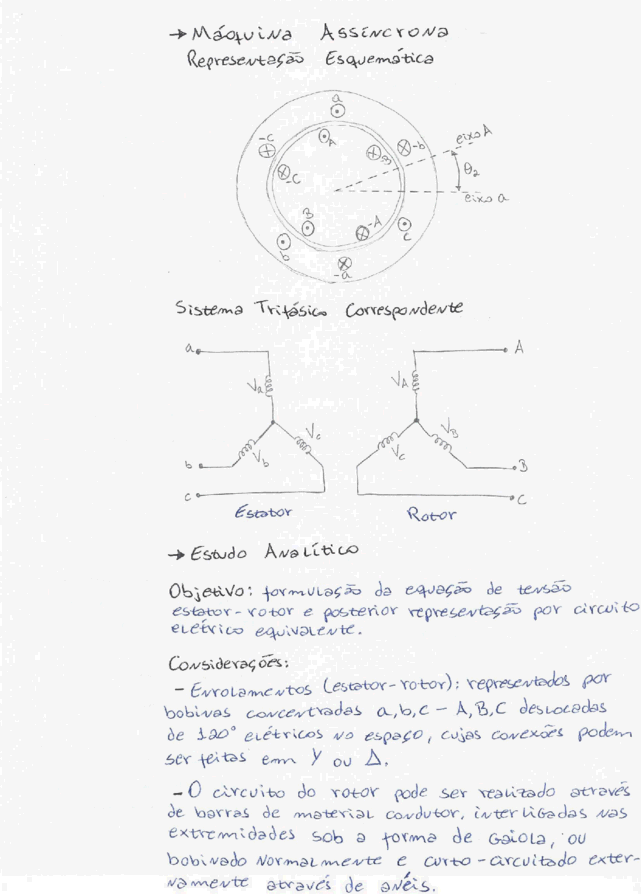 → Máquina Assíncrona
Representação Esquemática
a
-c
A
B
-b
eixo A
-C
θ2
eixo a
B
-A
c
b
-a
Sistema Trifásico Correspondente
a
A
Va
VA
Vc
VB
Vb
Vc
b
B
c
C
Estator
Rotor
→ Estudo Analítico
Objetivo: formulação da equação de tensão
estator-rotor e posterior representação por circuito
elétrico equivalente.
Considerações:
- Enrolamentos (estator-rotor): representados por
bobinas concentradas a,b,c - A,B,C deslocadas
de 120° elétricos no espaço, cujas conexões podem
ser feitas em Y ou Δ.
- O circuito do rotor pode ser realizado através
de barras de material condutor, interligadas nas
extremidades sob a forma de Gaiola, ou
bobinado normalmente e curto-circuitado exter-
namente através de anéis.